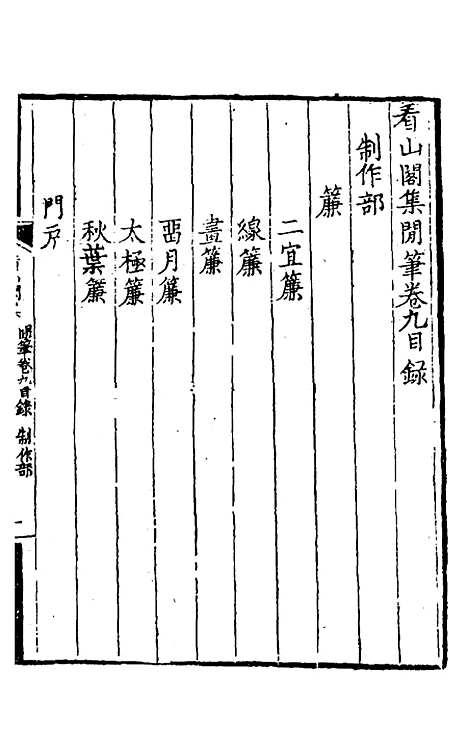 看山閣集閒筆卷九目録
制作部
簾
二宜簾
線簾
畫簾
啚月簾
太極簾
秋葉簾
門戶
閒筆卷九目録
制作部
一